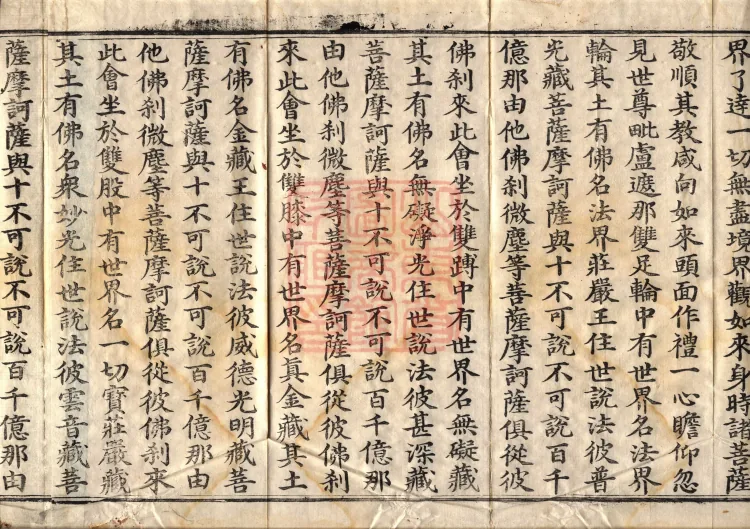 界了達一切無盡境界觀如來身時諸菩薩
敬順其教咸向如來頭面作禮一心瞻仰忽
見世尊毗盧遮那雙足輪中有世界名法界
輪其土有佛名法界莊嚴王住世說法彼普
光藏菩薩摩訶薩與十不可說不可說百千
億那由他佛剎微塵等菩薩摩訶薩俱從彼
佛剎來此會坐於雙蹲中有世界名無礙藏
其土有佛名無礙淨光住世說法彼甚深藏
菩薩摩訶薩與十不可說不可說百千億那
由他佛剎微塵等菩薩摩訶薩俱從彼佛剎
來此會坐於雙膝中有世界名真金藏其土
有佛名金藏王住世說法彼威德光明藏菩
薩摩訶薩與十不可說不可說百千億那由
他佛剎微塵等菩薩摩訶薩俱從彼佛剎來
此會坐於雙股中有世界名一切寶莊嚴藏
其土有佛名眾妙光住世說法彼雲音藏菩
薩摩訶薩與十不可說不可說百千億那由